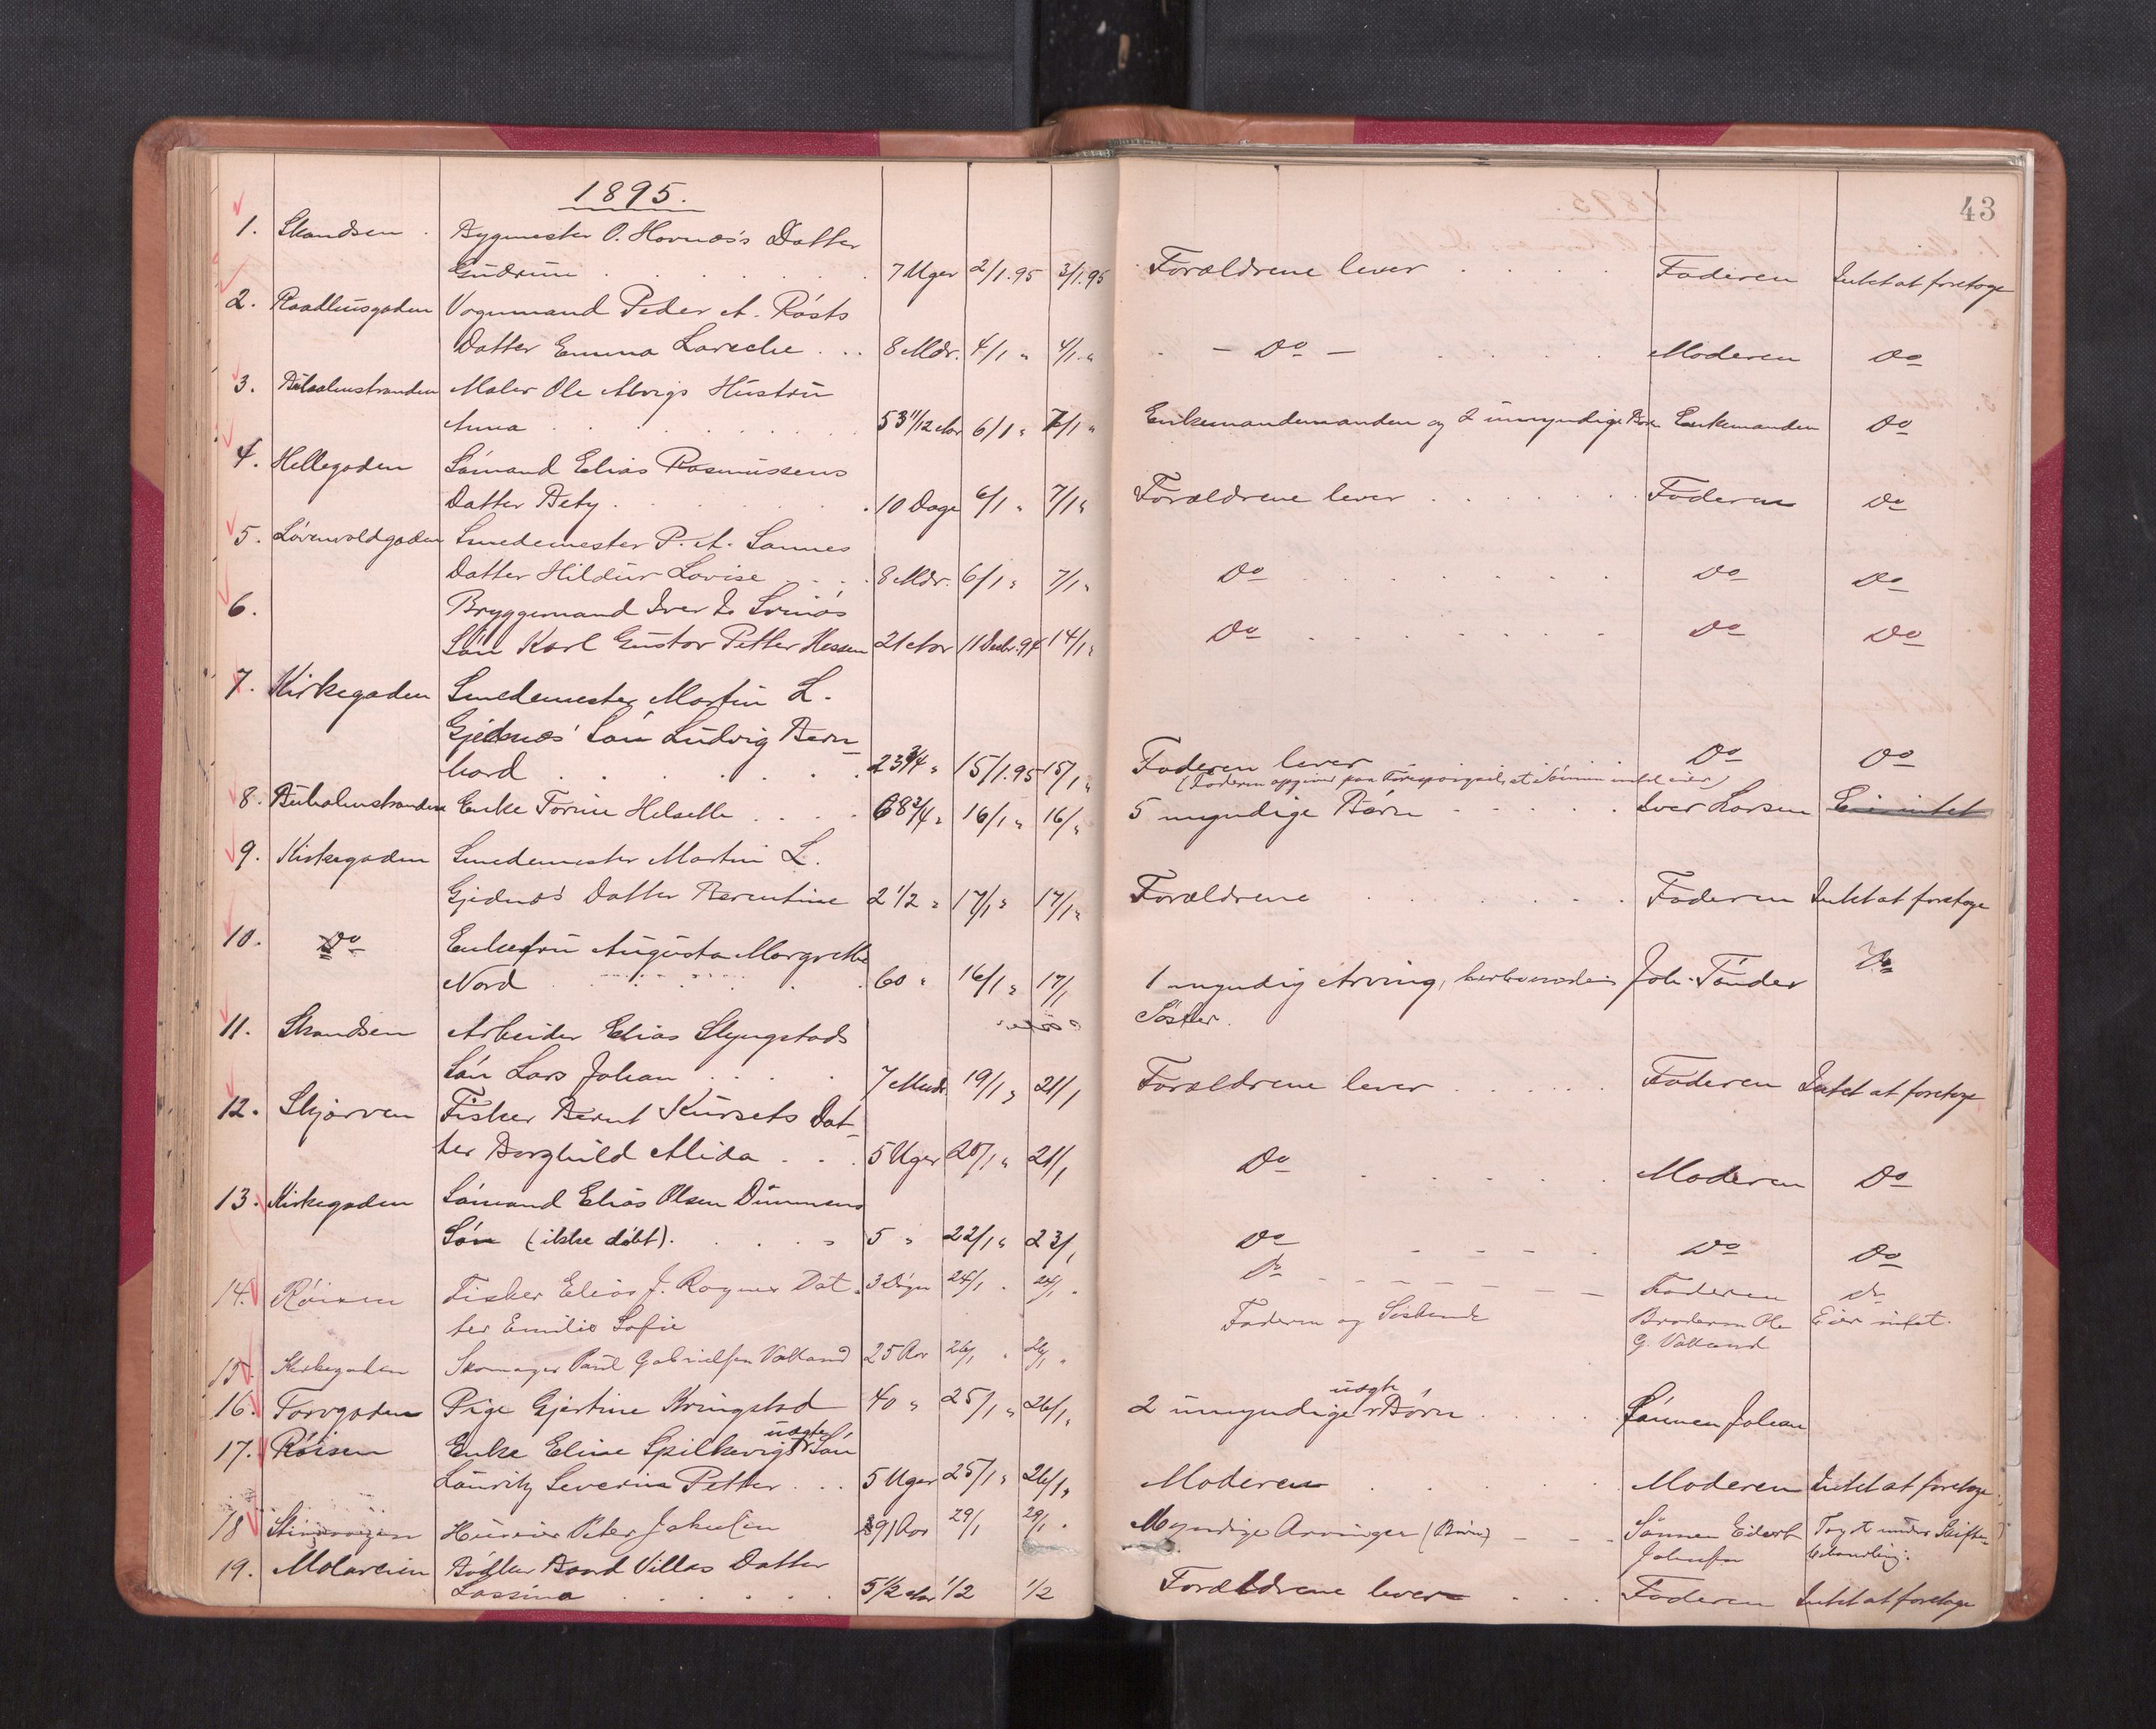 1895.
43
1. Skandsen Bygmester O. Hovnæs's Datter
Gudrun 7 Uger 2/1.95 3/1.95 Forældrene lever Faderen Intet at foretage
2. Raadhusgaden Vognmand Peder A. Røsts
Datter Emma 8 Mdr. 4/1 " 4/1 " - Do - Moderen Do
3. Maler Ole Alvigs Hustru
Anna 53 11/12 Aar 6/1 " 7/1 " Enkemandemanden og 2 umyndige Børn Enkemanden Do
4. Hellegaden Sømand Elias Rasmussens
Datter Bety 10 Dage 6/1 " 7/1 " Forældrene lever Faderen Do
5. Løvenvoldgaden Smedemester P. A. Sannes
Datter Hildur Lovise 8 Mdr. 6/1 " 7/1 " Do Do Do
6. Bryggemand Iver
Søn Karl Gustav Petter 21 Aar 11 Decbr. 94 14/1 " Do Do Do
7. Kirkegaden Smedemester Martin L.
Gjednæs' Søn Ludvig Bern-
hard 23 3/4 " 15/1.95 15/1 " Faderen lever Do Do
(Faderen opgiver paa Forespørgsel, at Sønnen intet eier)
8. Enke Torine Helsette 68 3/4 " 16/1 " 16/1 " 5 myndige Børn Iver Larsen Eier intet
9. Kirkegaden Smedemester Martin L.
Gjednæs' Datter Berentine 2 1/2 " 17/1 " 17/1 " Forældrene Faderen Intet at foretage
10. Do Enkefru Augusta Margrethe
Nord 60 " 16/1 " 17/1 1 myndig Arving, herboende Joh. Tønder Do
Søster.
11. Skandsen Arbeider Elias Slyngstads
Søn Lars Johan 7 Mndr 19/1 " 21/1 Forældrene lever Faderen Intet at foretage
12. Skjærven Fisker Bernt Kursets Dat-
ter Borghild Alida 5 Uger 20/1 " 21/1 Do Moderen Do
13. Kirkegaden Sømand Elias Olsen
Søn (ikke døbt). 5 " 22/1 " 23/1 Do Do Do
14. Røisen Fisker Elias J. Rognes Dat- 3 Døgn 24/1 24/1 Do Faderen do
ter Emilie Sofie
Faderen og Søskende Broderen Ole Eier intet.
G. Vatland
15. Kirkegaden Skomager Paul Gabrielsen Vatland 25 Aar 26/1 26/1
16. Torvgaden Pige Gjertine Kringstad 40 " 25/1 " 26/1 " 2 umyndige uægte Børn Sønnen Johan
17. Røisen Enke Eline Spilkevigs uægte Søn
Lauritz Severin Petter 5 Uger 25/1 " 26/1 " Moderen Moderen Intet at foretage
18 Huseier Peter Jakobsen 91 Aar 29/1 29/1 Myndige Arvinger (Børn) Sønnen Edvart Tagt under Skifte-
behandling.
19. Molaveien Bødker Baard Villas Datter
Lassina 5 1/2 Aar 1/2 1/2 Forældrene lever Faderen Intet at foretage